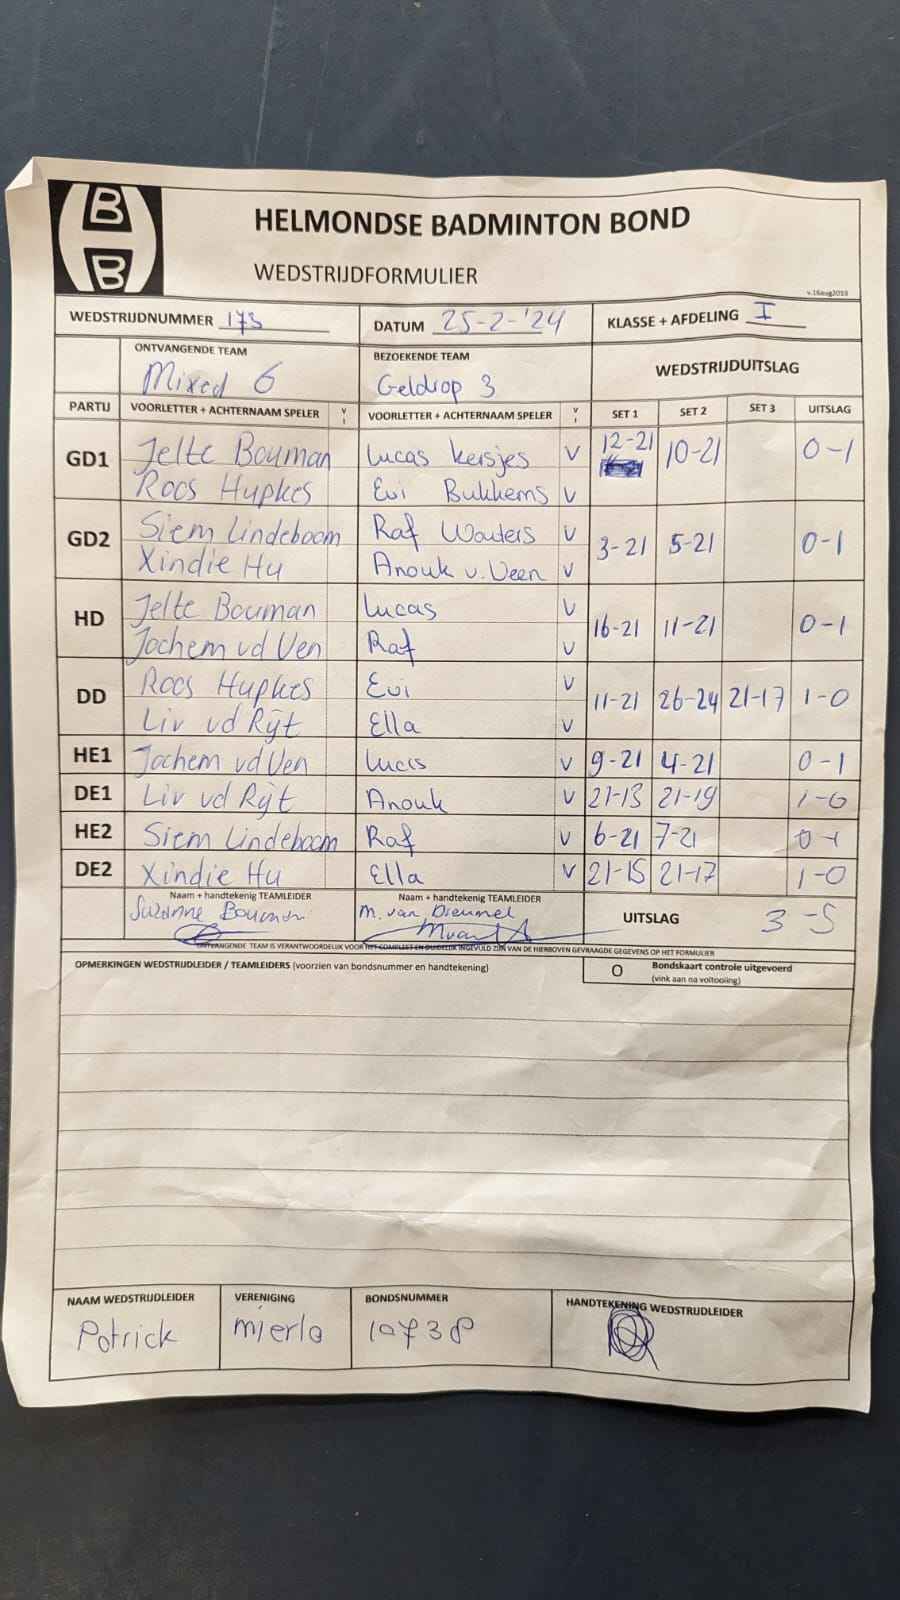 HELMONDSE BADMINTON BOND
WEDSTRIJDFORMULIER
v.16aug2019
WEDSTRIJDNUMMER 173 DATUM 25-2-'24 KLASSE + AFDELING I
ONTVANGENDE TEAM BEZOEKENDE TEAM WEDSTRIJDUITSLAG
Mixed 6 Geldrop 3
PARTIJ VOORLETTER + ACHTERNAAM SPELER V I VOORLETTER + ACHTERNAAM SPELER V I SET 1 SET 2 SET 3 UITSLAG
GD1 Jelte Bouman Lucas Keisjes V 12-21 10-21 0-1
Roos Hupkes Evi Bukkems V
GD2 Siem Lindeboom Raf Wouters V 3-21 5-21 0-1
Xindie Hu Anouk v. Veen V
HD Jelte Bouman Lucas V 16-21 11-21 0-1
Jochem vd Ven Raf V
DD Roos Hupkes Evi V 11-21 26-24 21-17 1-0
Liv vd Rijt Ella V
HE1 Jochem vd Ven Lucas V 9-21 4-21 0-1
DE1 Liv vd Rijt Anouk V 21-13 21-19 1-0
HE2 Siem Lindeboom Raf V 6-21 7-21 0-1
DE2 Xindie Hu Ella V 21-15 21-17 1-0
Naam + handtekenig TEAMLEIDER Naam + handtekenig TEAMLEIDER UITSLAG 3-5
Suzanne Bouman M. van
ONTVANGENDE TEAM IS VERANTWOORDELIJK VOOR HET COMPLEET EN DUIDELIJK INGEVULD ZIJN VAN DE HIERBOVEN GEVRAAGDE GEGEVENS OP HET FORMULIER
OPMERKINGEN WEDSTRIJDLEIDER / TEAMLEIDERS (voorzien van bondsnummer en handtekening) O Bondskaart controle uitgevoerd
(vink aan na voltooiing)
NAAM WEDSTRIJDLEIDER VERENIGING BONDSNUMMER HANDTEKENING WEDSTRIJDLEIDER
Patrick mierlo 10738